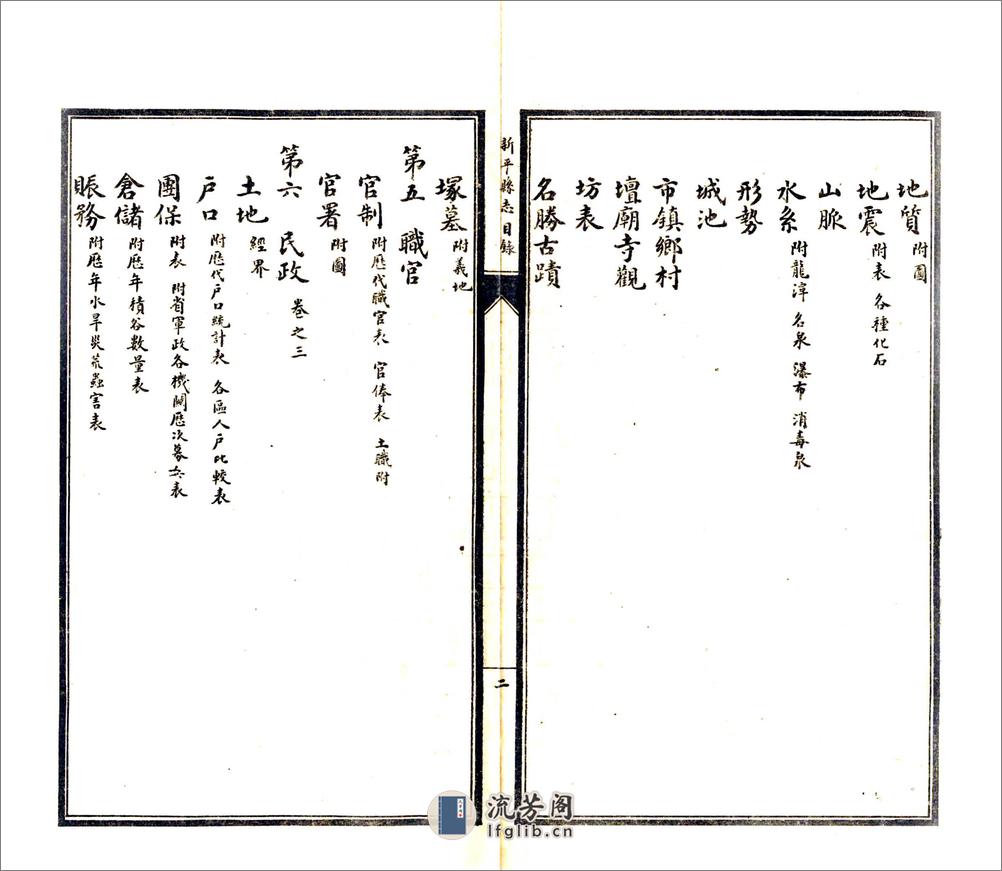 地質 附圖
地震 附表 各種化石
山脈
水系 附龍淳 名泉 瀑布 消毒泉
形勢
城池
市鎮鄉村
壇廟寺觀
坊表
名勝古蹟
新平縣志目錄
二
塚墓 附義地
第五 職官
官制 附歷代職官表 官俸表 土職附
官署 附圖
第六 民政 卷之三
土地 經界
戶口 附歷代戶口統計表 各區人戶比較表
團保 附表 附省軍政各機關歷次募兵表
倉儲 附歷年積谷數量表
賑務 附歷年水旱災荒蟲害表
流芳阁
lfglib.cn